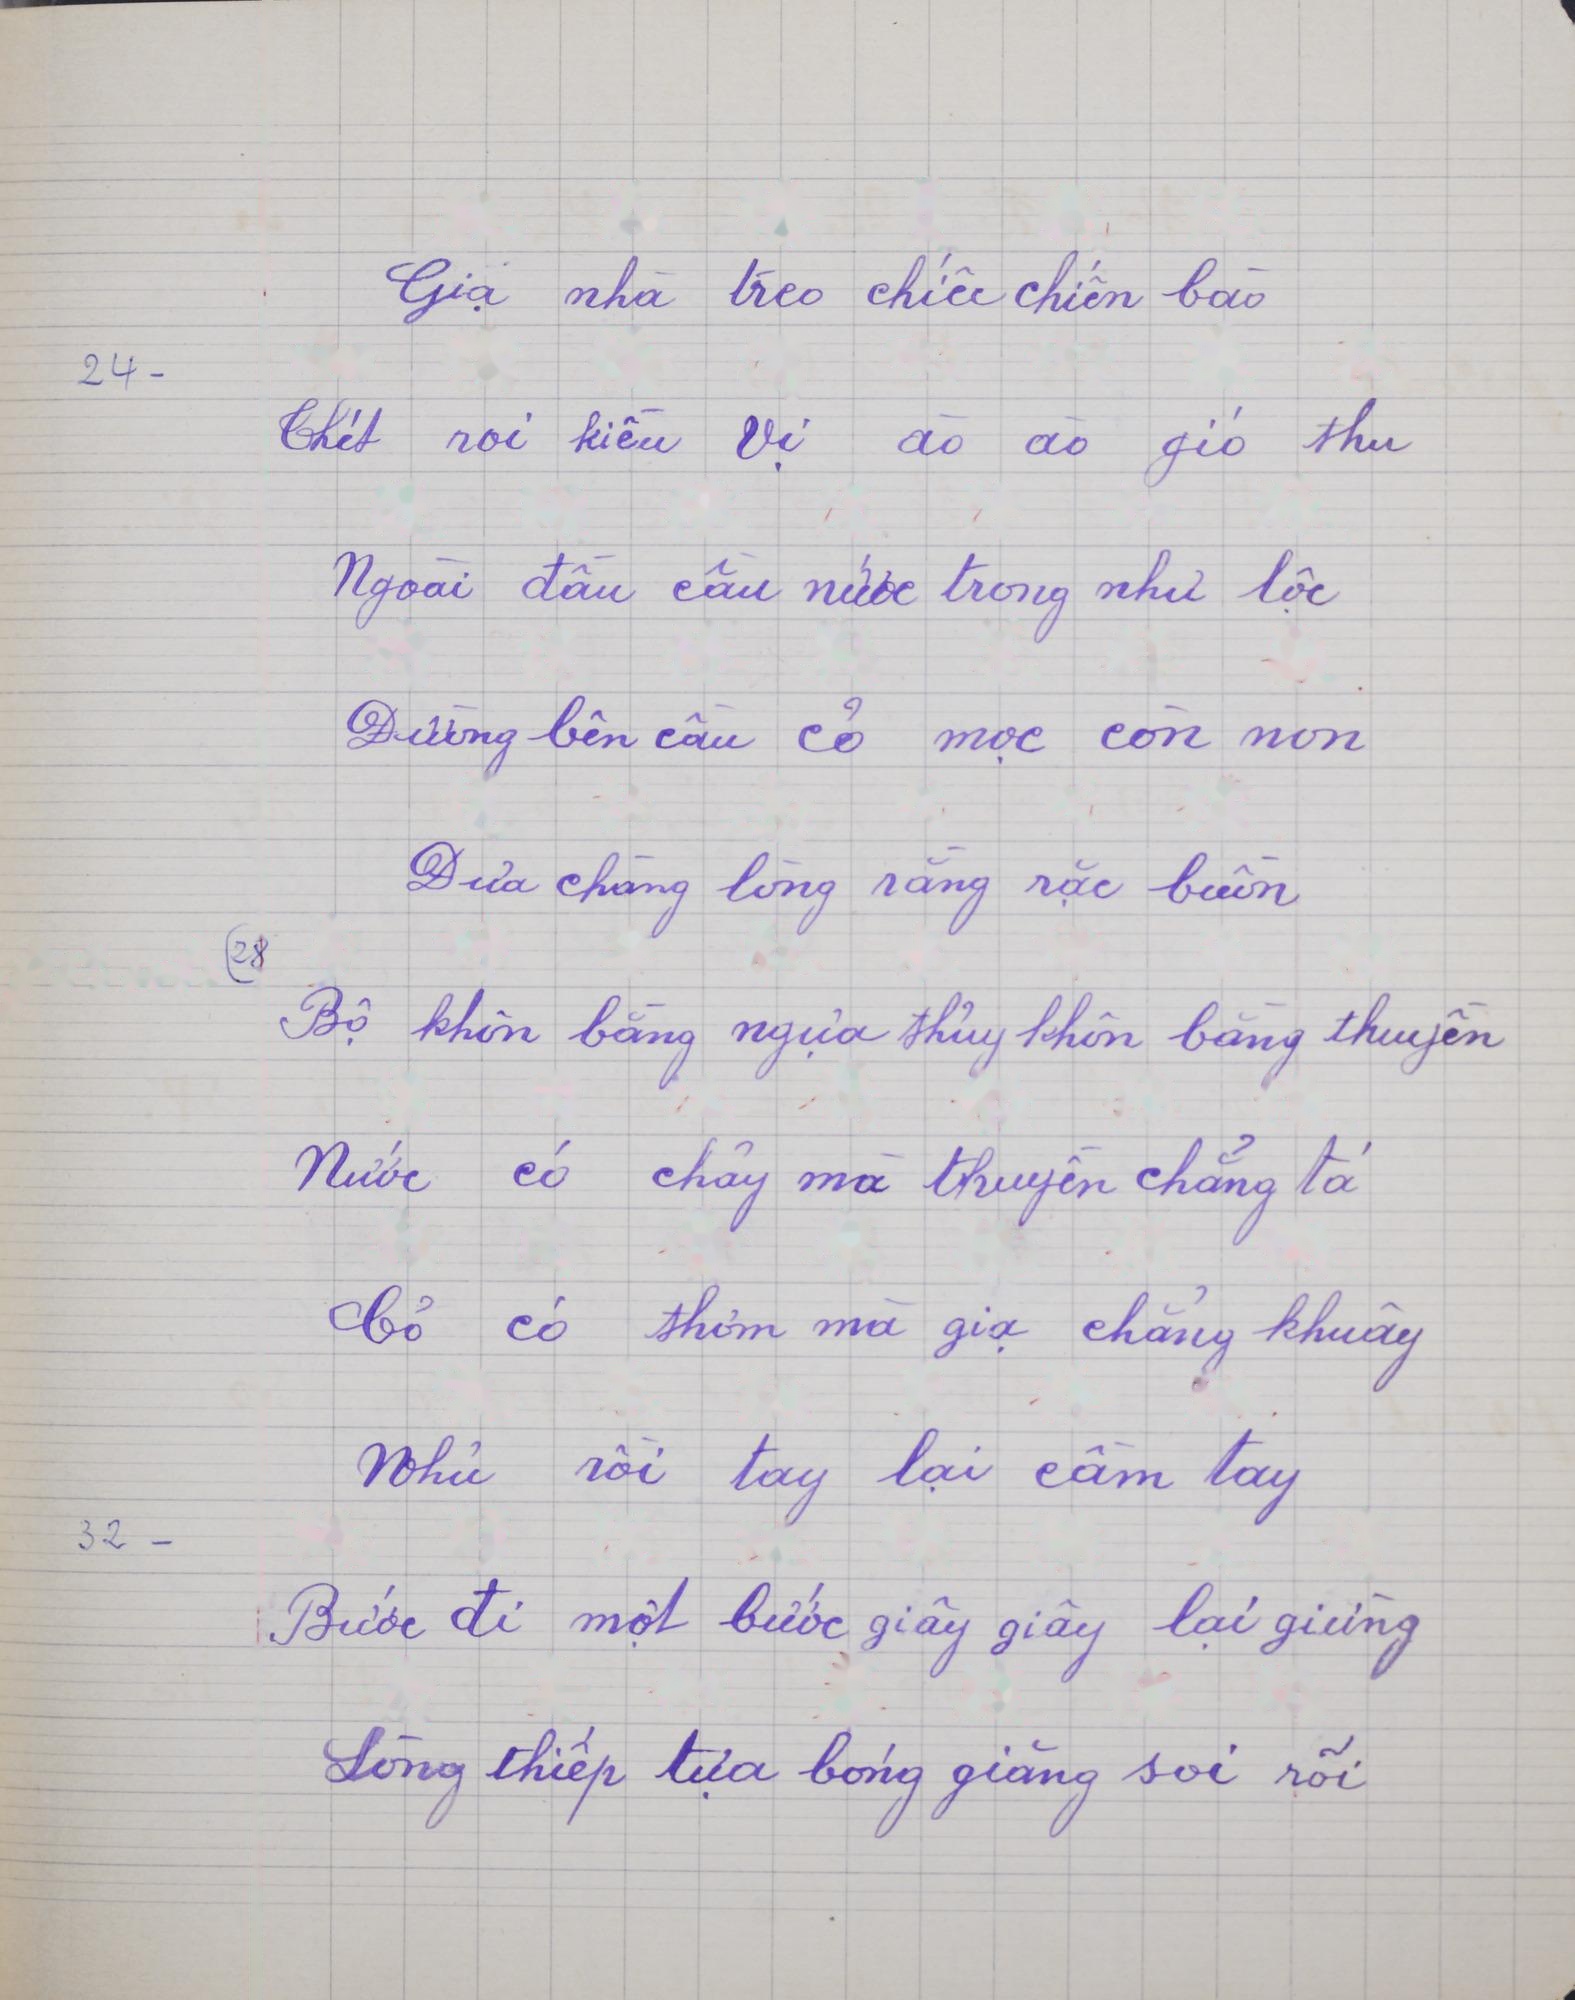 Giạ nhà treo chiếc chiến bào
24-
Thét roi kiều Vị ào ào gió thu
Ngoài đầu cầu nước trong như lộc
Đường bên cầu cỏ mọc còn non
Đưa chàng lòng rằng rặc buồn
(28
Bộ khôn bằng ngựa thủy khôn bằng thuyền
Nước có chảy mà thuyền chẳng tá
Cỏ có thơm mà giạ chẳng khuây
Nhủ rồi tay lại cầm tay
32 -
Bước đi một bước giây giây lại giừng
Lòng thiếp tựa bóng giăng soi rõi